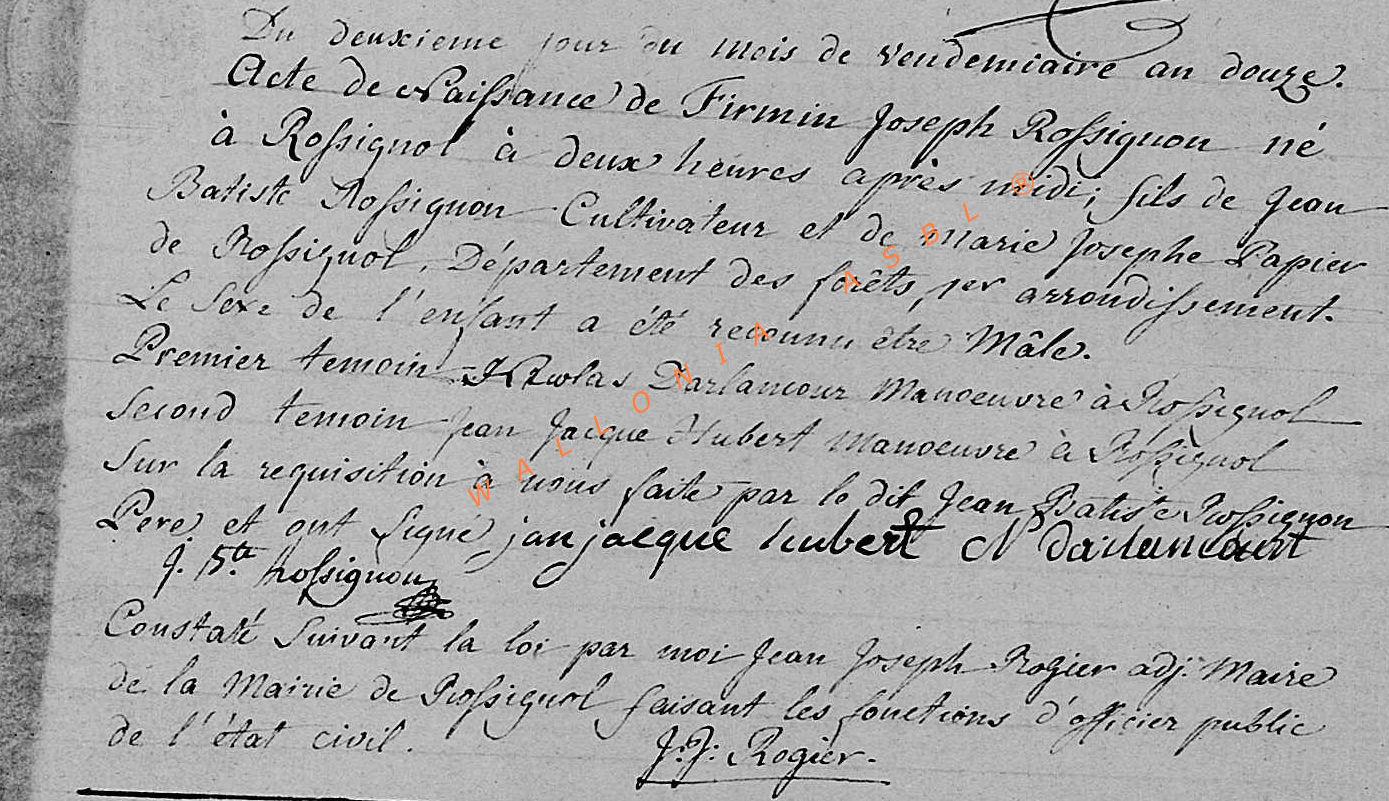 Du deuxieme jour du mois de vendemiaire an douze.
Acte de Naissance de Firmin Joseph Rossignon né
à Rossignol à deux heures après midi; fils de Jean
Batiste Rossignon Cultivateur et de Marie Josephe Papier
de Rossignol, Département des forêts, 1er arrondissement.
Le Sexe de l'enfant a été reconnu être Mâle.
Premier temoin Nicolas Darlamcour Manoeuvre à Rossignol
Second temoin Jean Jacque Hubert Manoeuvre à Rossignol
Sur la requisition à nous faite par le dit Jean Batiste Rossignon
Pere, et ont Signé, jan jacque hubert N darlancourt
J. Bte. Rossignon
Constaté Suivant la loi par moi Jean Joseph Rogier adj. Maire
de la Mairie de Rossignol faisant les fonctions d'officier public
de l'état civil.
J. J. Rogier.
WALLONIA ASBL ®